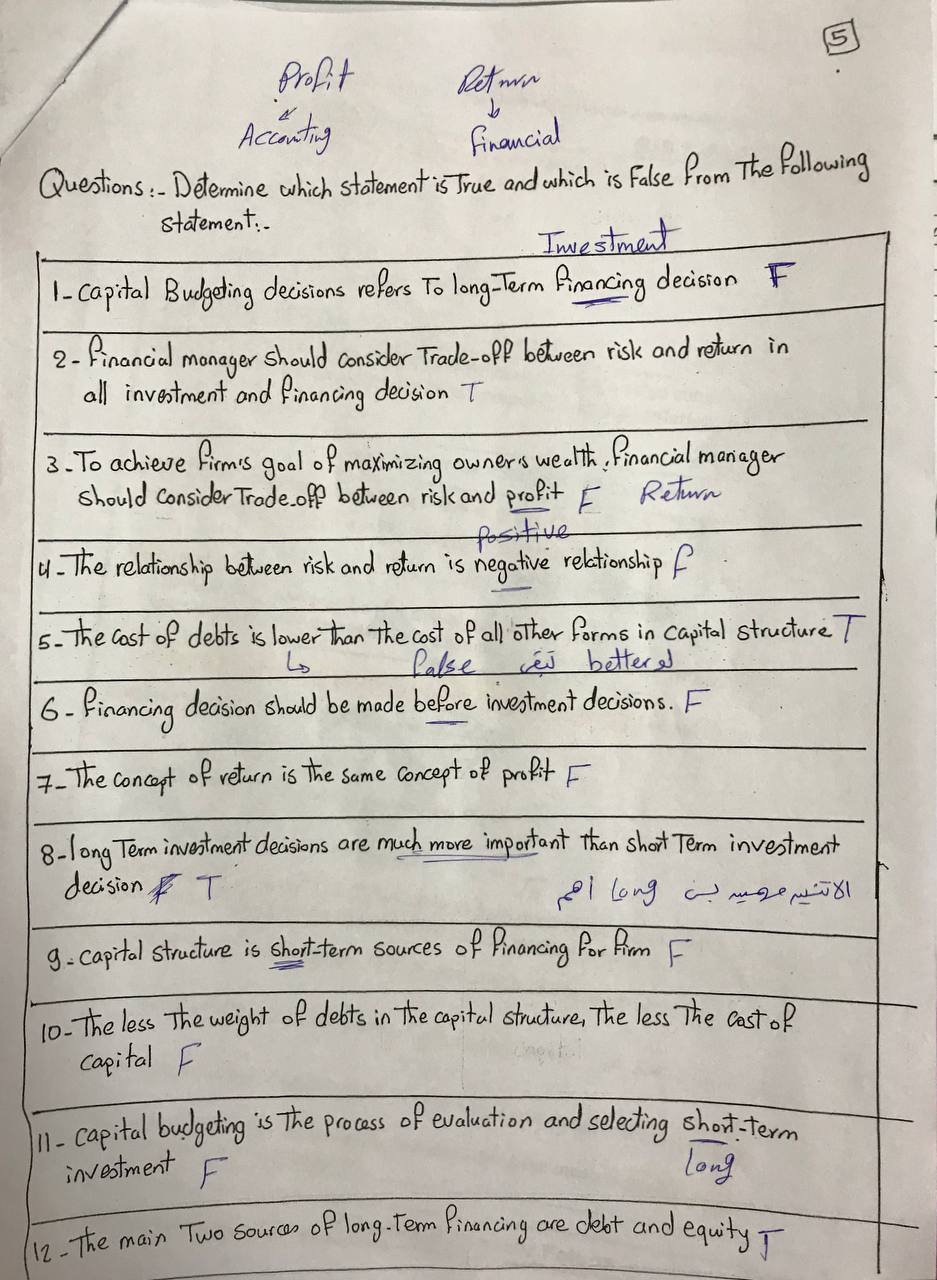 5
Profit Return
Accounting financial
Questions:- Determine which statement is True and which is False from The following
statement:-
Investment
1- Capital Budgeting decisions refers To long-Term financing decision F
2- financial manager should consider Trade-off between risk and return in
all investment and financing decision T
3- To achieve firm's goal of maximizing owner's wealth, financial manager
should consider Trade-off between risk and profit F Return
positive
4- The relationship between risk and return is negative relationship F
5- The cost of debts is lower than The cost of all other forms in capital structure T
false تبقى better لو
6- financing decision should be made before investment decisions. F
7- The concept of return is the same concept of profit F
8- long Term investment decisions are much more important than short Term investment
decision T
الاتنين مهمين بس long أهم
9- capital structure is short-term sources of financing for firm F
10- The less The weight of debts in the capital structure, The less The cost of
capital F
11- capital budgeting is The process of evaluation and selecting short-term
investment F long
12- The main Two sources of long-term financing are debt and equity T